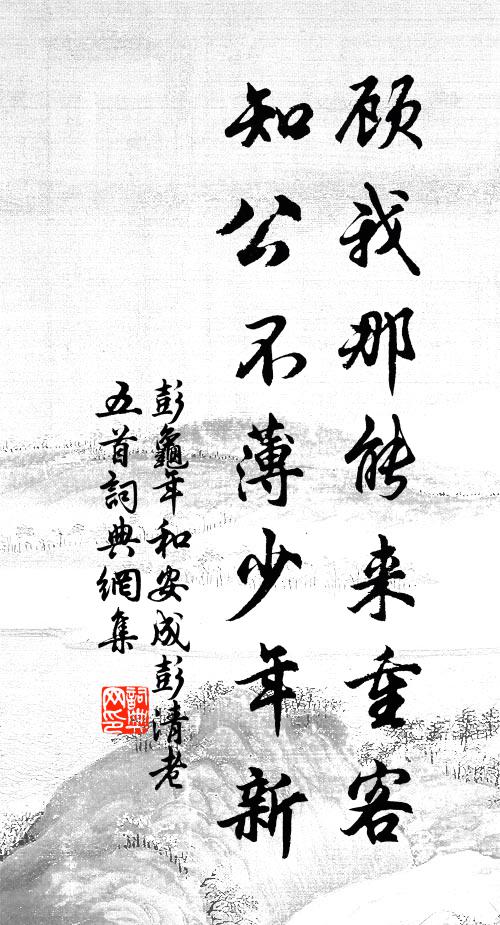 顾我那能来重客
知公不薄少年新
彭龜年和安成彭清老
五首詞典網集
詞典
网印